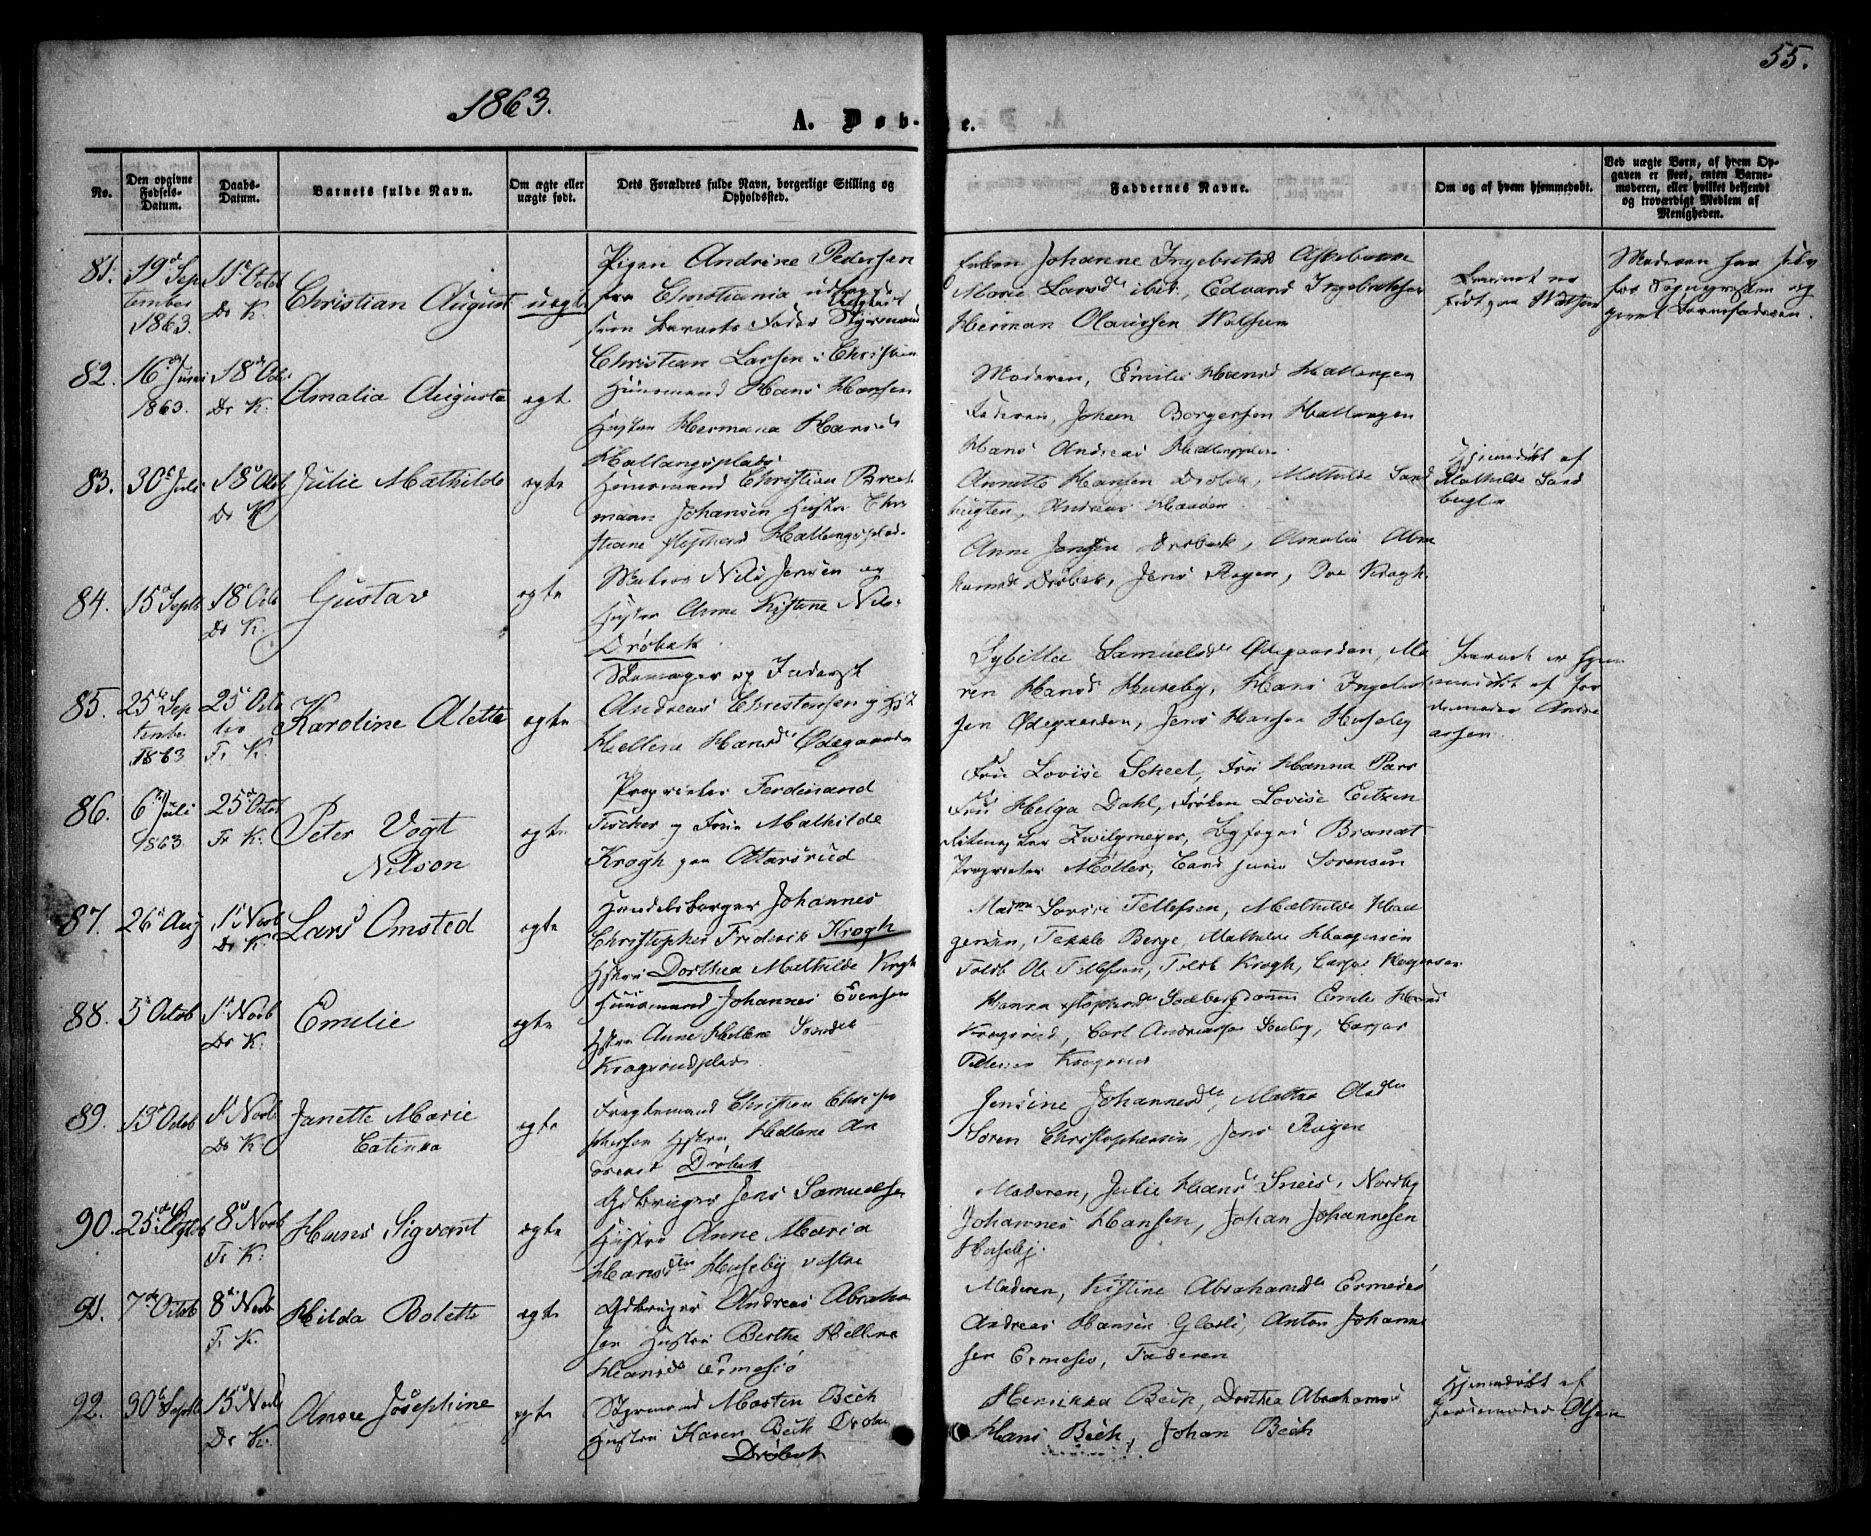 55.
1863.
A. Døb-
te.
No.
Den opgivne Fødsels-Datum.
Daabs-Datum.
Barnets fulde Navn.
Om ægte eller uægte født.
Dets Forældres fulde Navn, borgerlige Stilling og Opholdssted.
Faddernes Navne.
Om og af hvem hjemmedøbt.
Ved uægte Børn, af hvem Opgaven er skeet, enten Barnemoderen, eller hvilket bekjendt og troværdigt Medlem af Menigheden.
81. 19 Sep
tember
1863.
11 Octob
Dr K.
Christian August
uægte
Pigen Andrine Pedersen
fra Christiania udlagt
Barnets Fader Styrmand
Christian Larsen i Christian
Johanne Ingebretsd
Marie Larsd ibid., Edvard Ingebretsen
Herman Olaussen
Barnet er
Moderen har
82. 16 Juni
1863.
18 Octo
Dr K.
Amalia Augusta
ægte
Huusmand Hans Hansen
Hustru Hermana Hansd
Hallangsplads
Moderen, Emilie Hansd Hallangen
Faderen, Johan Borgersen Hallangen
Hans Andreas
83. 30 Juli
18 Octob
Dr K
Julie Mathilde
ægte
Huusmand Christian Breck
mann Johansen Hustru Chri
stiane Hallangsplad.
Annette Hansen Drøbak, Mathilde Sand
bugten, Andreas Hansen
Hjemedøbt af
Mathilde Sand
bugten
84. 15 Septb
18 Octo
Dr K.
Gustav
ægte
Matros Nils Jensen og
Hustru Anne Kistene Nils.
Drøbak
Anne Jensen Drøbak, Amalia Abra
hamsd Drøbak, Jens Ragen, Ove Krogh.
85. 25 Sep
tember
1863
25 Octo
ber
Fr K.
Karoline Alette
ægte
Skomager og Inderst
Andreas Christensen og Hst
Hellene Hansd Ødegaarden
Sybille Samuelsd Ødegaarden, Ma
ren Hansd Huseby, Hans Ingebret
sen Ødegaarden, Jens Hansen Huseby
Barnet er hjem
medøbt af Jor
demoder Andre
assen
86. 6 Juli
1863
25 Octob
Fr K.
Peter Vogt
Nilson
ægte
Proprietær Ferdinand
Fischer og Frue Mathilde
Krogh paa Ottarsrud
Fru Lovise Scheel, Fru Hanna Parr
Fru Helga Dahl, Frøken Lovise Eitzen
Zwilgmeyer, Byfoged Brandt
Proprietær Møller, Cand juris Sorensen
87. 26 Aug
1 Novb
Dr K.
Lars Omsted
ægte
Handelsborger Johannes
Christopher Frederik Krogh
Hstru Dorthea Mathilde Krogh
Mad Lovise Tellefsen, Mathilde Haa
gensen, Tekkla Berge, Mathilde Haagensen
Toldb Ole Tellefsen, Toldb Krogh, Caspar Haagensen
88. 5 Octob
1 Novb
Dr K.
Emilie
ægte
Huusmand Johannes Evensen
Hstru Anne Hellene
Kragsrudplads
Emilie Hansd
Kragsrud, Carl Andreassen Huseby, Caspar
Kragsrud
89. 13 Octob
1 Novb
Dr K.
Janette Marie
Catinka
ægte
Fragtemand Christian Christo
phersen Hstru, Hellene An
dreasd Drøbak
Jensine Johannesd, Mathea Olsd
Soren Christophersen, Jens Ragen
90. 25 Septb
8 Novb
Fr K.
Hans Sigvart
ægte
Gdbruger Jens Samuelsen
Hustru Anne Maria
Hansd Huseby vestre
Moderen, Julie Hansd Sneis, Nordby
Johannes Hansen, Johan Johannesen
Huseby.
91. 7 Octob
8 Novb
Fr K.
Hilda Bolette
ægte
Gdbruger Andreas Abraham
sen Hustru Berthe Hellene
Hansd Ermesjø
Moderen, Kistine Abrahamsd Ermesjø
Andreas Hansen Glosli, Anton Johanne
sen Ermesjø, Faderen
92. 30 Septb
15 Novb
Dr K.
Anna Josephine
ægte
Styrmand Morten Bech
Hustru Karen Bech
Drøbak
Henrikka Bech, Dorthea Abrahamsd
Hans Bech, Johan Bech
Hjemedøbt af
Jordemoder Olsen